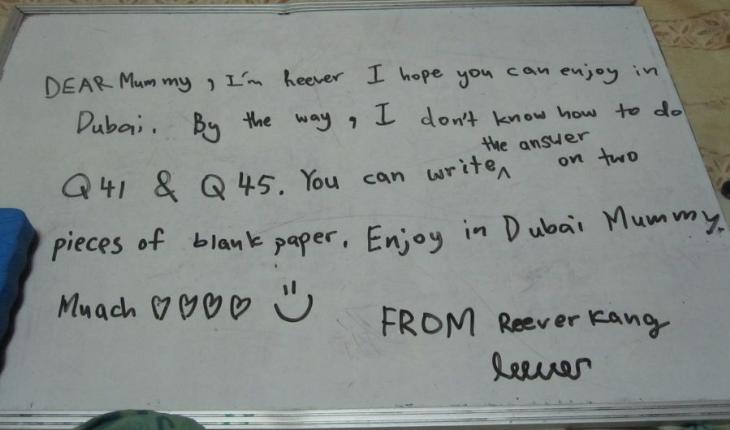 DEAR Mummy, I'm Reever I hope you can enjoy in
Dubai. By the way, I don't know how to do
Q41 & Q45. You can write ^ the answer on two
pieces of blank paper. Enjoy in Dubai Mummy.
Muach ♡♡♡♡ ¨)
FROM Reever Kang
Reever